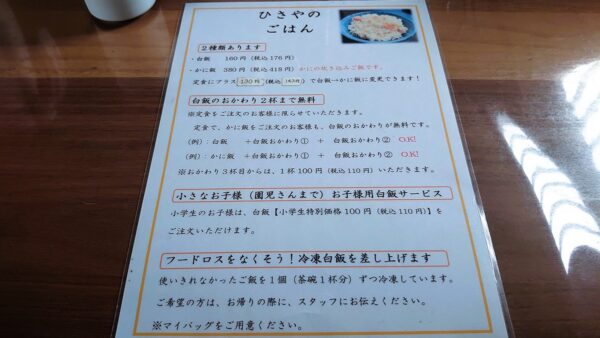 ひさやの
ごはん
2種類あります
・白飯 160円(税込176円)
・かに飯 380円(税込418円)かにの炊き込みご飯です。
定食にプラス130円(税込143円)で白飯→かに飯に変更できます!
白飯のおかわり2杯まで無料
※定食をご注文のお客様に限らせていただきます。
定食で、かに飯をご注文のお客様も、白飯のおかわりが無料です。
(例):白飯 +白飯おかわり① + 白飯おかわり② OK!
(例):かに飯 +白飯おかわり① + 白飯おかわり② OK!
※おかわり3杯目からは、1杯100円(税込110円)いただきます。
小さなお子様(園児さんまで)お子様用白飯サービス
小学生のお子様は、白飯【小学生特別価格100円(税込110円)】を
ご注文いただけます。
フードロスをなくそう!冷凍白飯を差し上げます
使いきれなかったご飯を1個(茶碗1杯分)ずつ冷凍しています。
ご希望の方は、お帰りの際に、スタッフにお伝えください。
※マイバッグをご用意ください。